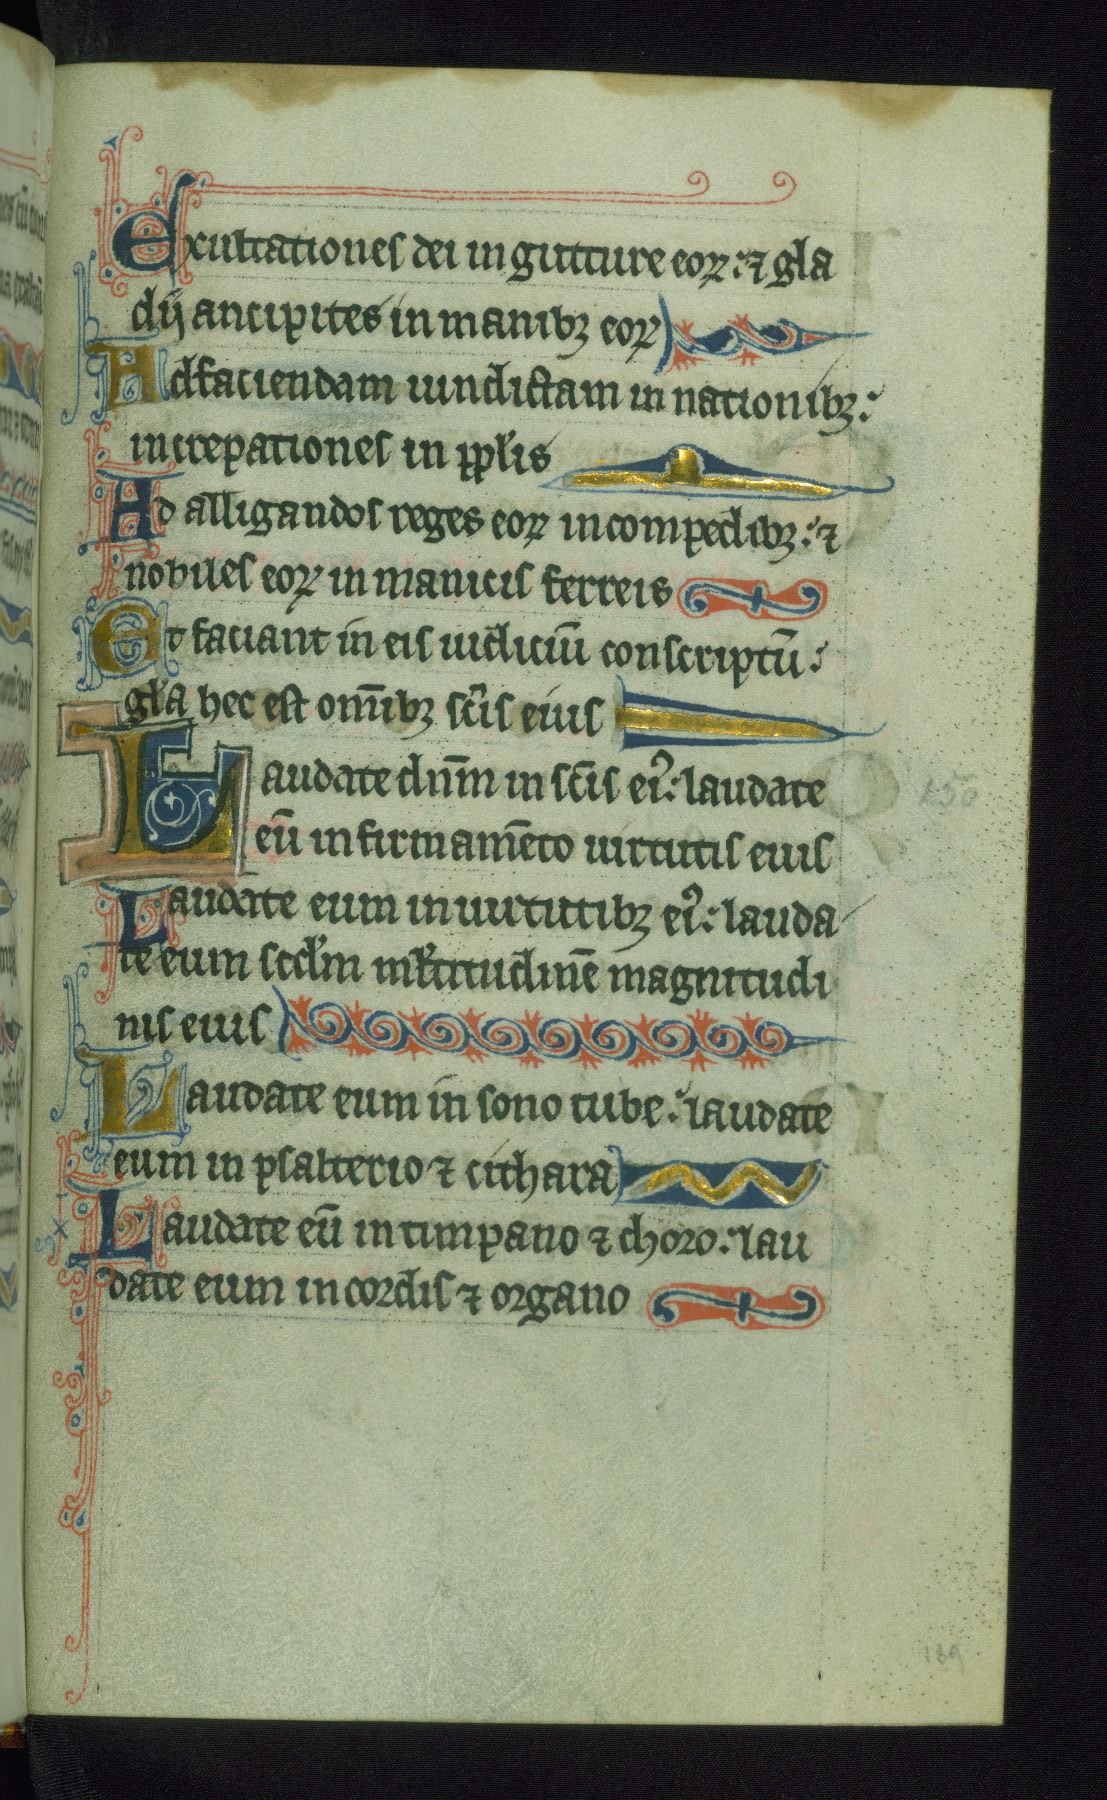 Exultationes dei in gutture eoꝝ: ⁊ gla
dij ancipites in manibꝫ eoꝝ
Ad faciendam uindictam in nationibꝫ:
increpationes in ppl̃is
Ad alligandos reges eoꝝ in compedibꝫ: ⁊
nobiles eoꝝ in manicis ferreis
Et faciant in eis iudiciũ conscriptũ:
gl̃a hec est om̃ibꝫ sc̃is eius
Laudate dñm in sc̃is ei9: laudate
eũ in firmam̃eto uirtutis euis
Laudate eum in uirtutibꝫ ei9: lauda
te eum scd̃m ml̃titudinẽ magnitudi
nis eius
Laudate eum in sono tube: laudate
eum in psalterio ⁊ cithara
Laudate eũ in timpano ⁊ choro: lau
date eum in cordis ⁊ organo
150
189